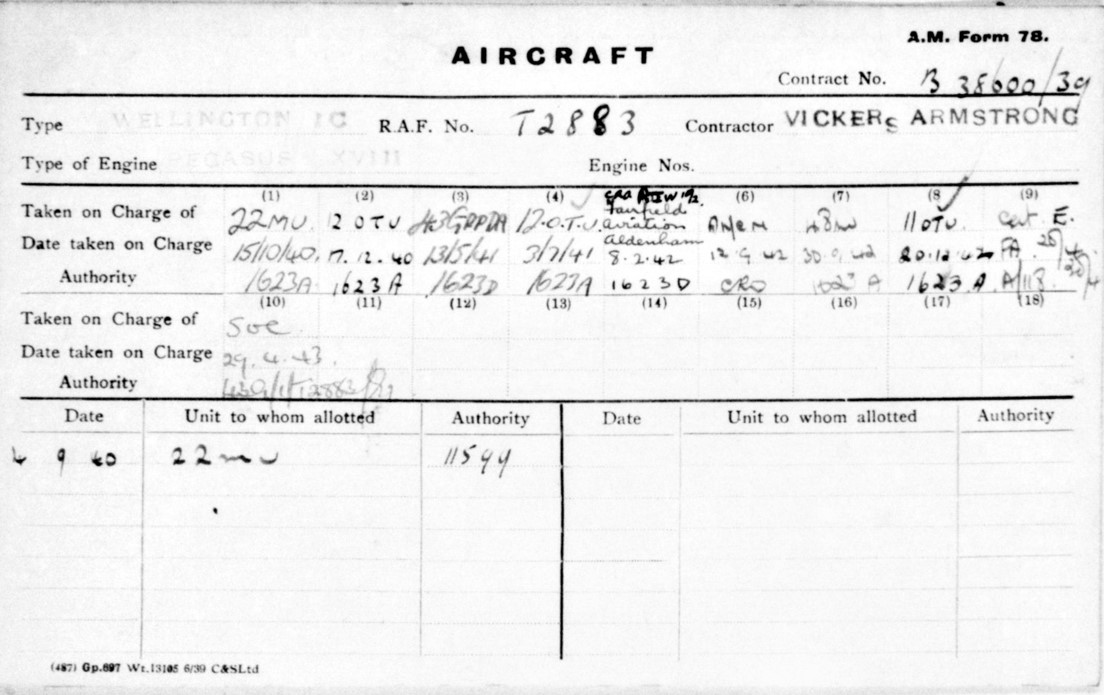 A.M. Form 78.
AIRCRAFT
Contract No. B 38600/39
Type WELLINGTON IC R.A.F. No. T2883 Contractor VICKERS ARMSTRONG
Type of Engine PEGASUS XVIII Engine Nos.
(1) (2) (3) (4) (6) (7) (8) (9)
Taken on Charge of 22MU. 12 OTU 43 GRP DA 12.O.T.U. Fairfield aviation Aldenham 11 OTU Cat E.
Date taken on Charge 15/10/40. 17.12.40 13/5/41 3/7/41 8.2.42 12.9.42 30.9.42 20.12.42 FA
Authority 1623A 1623A 1623D 1623A 1623D CRO 1623 A 1623 A
(10) (11) (12) (13) (14) (15) (16) (17) (18)
Taken on Charge of SOC
Date taken on Charge 29.4.43.
Authority
Date Unit to whom allotted Authority Date Unit to whom allotted Authority
4 9 40 22 MU 11599
(487) Gp.697 Wt.13105 6/39 C&SLtd